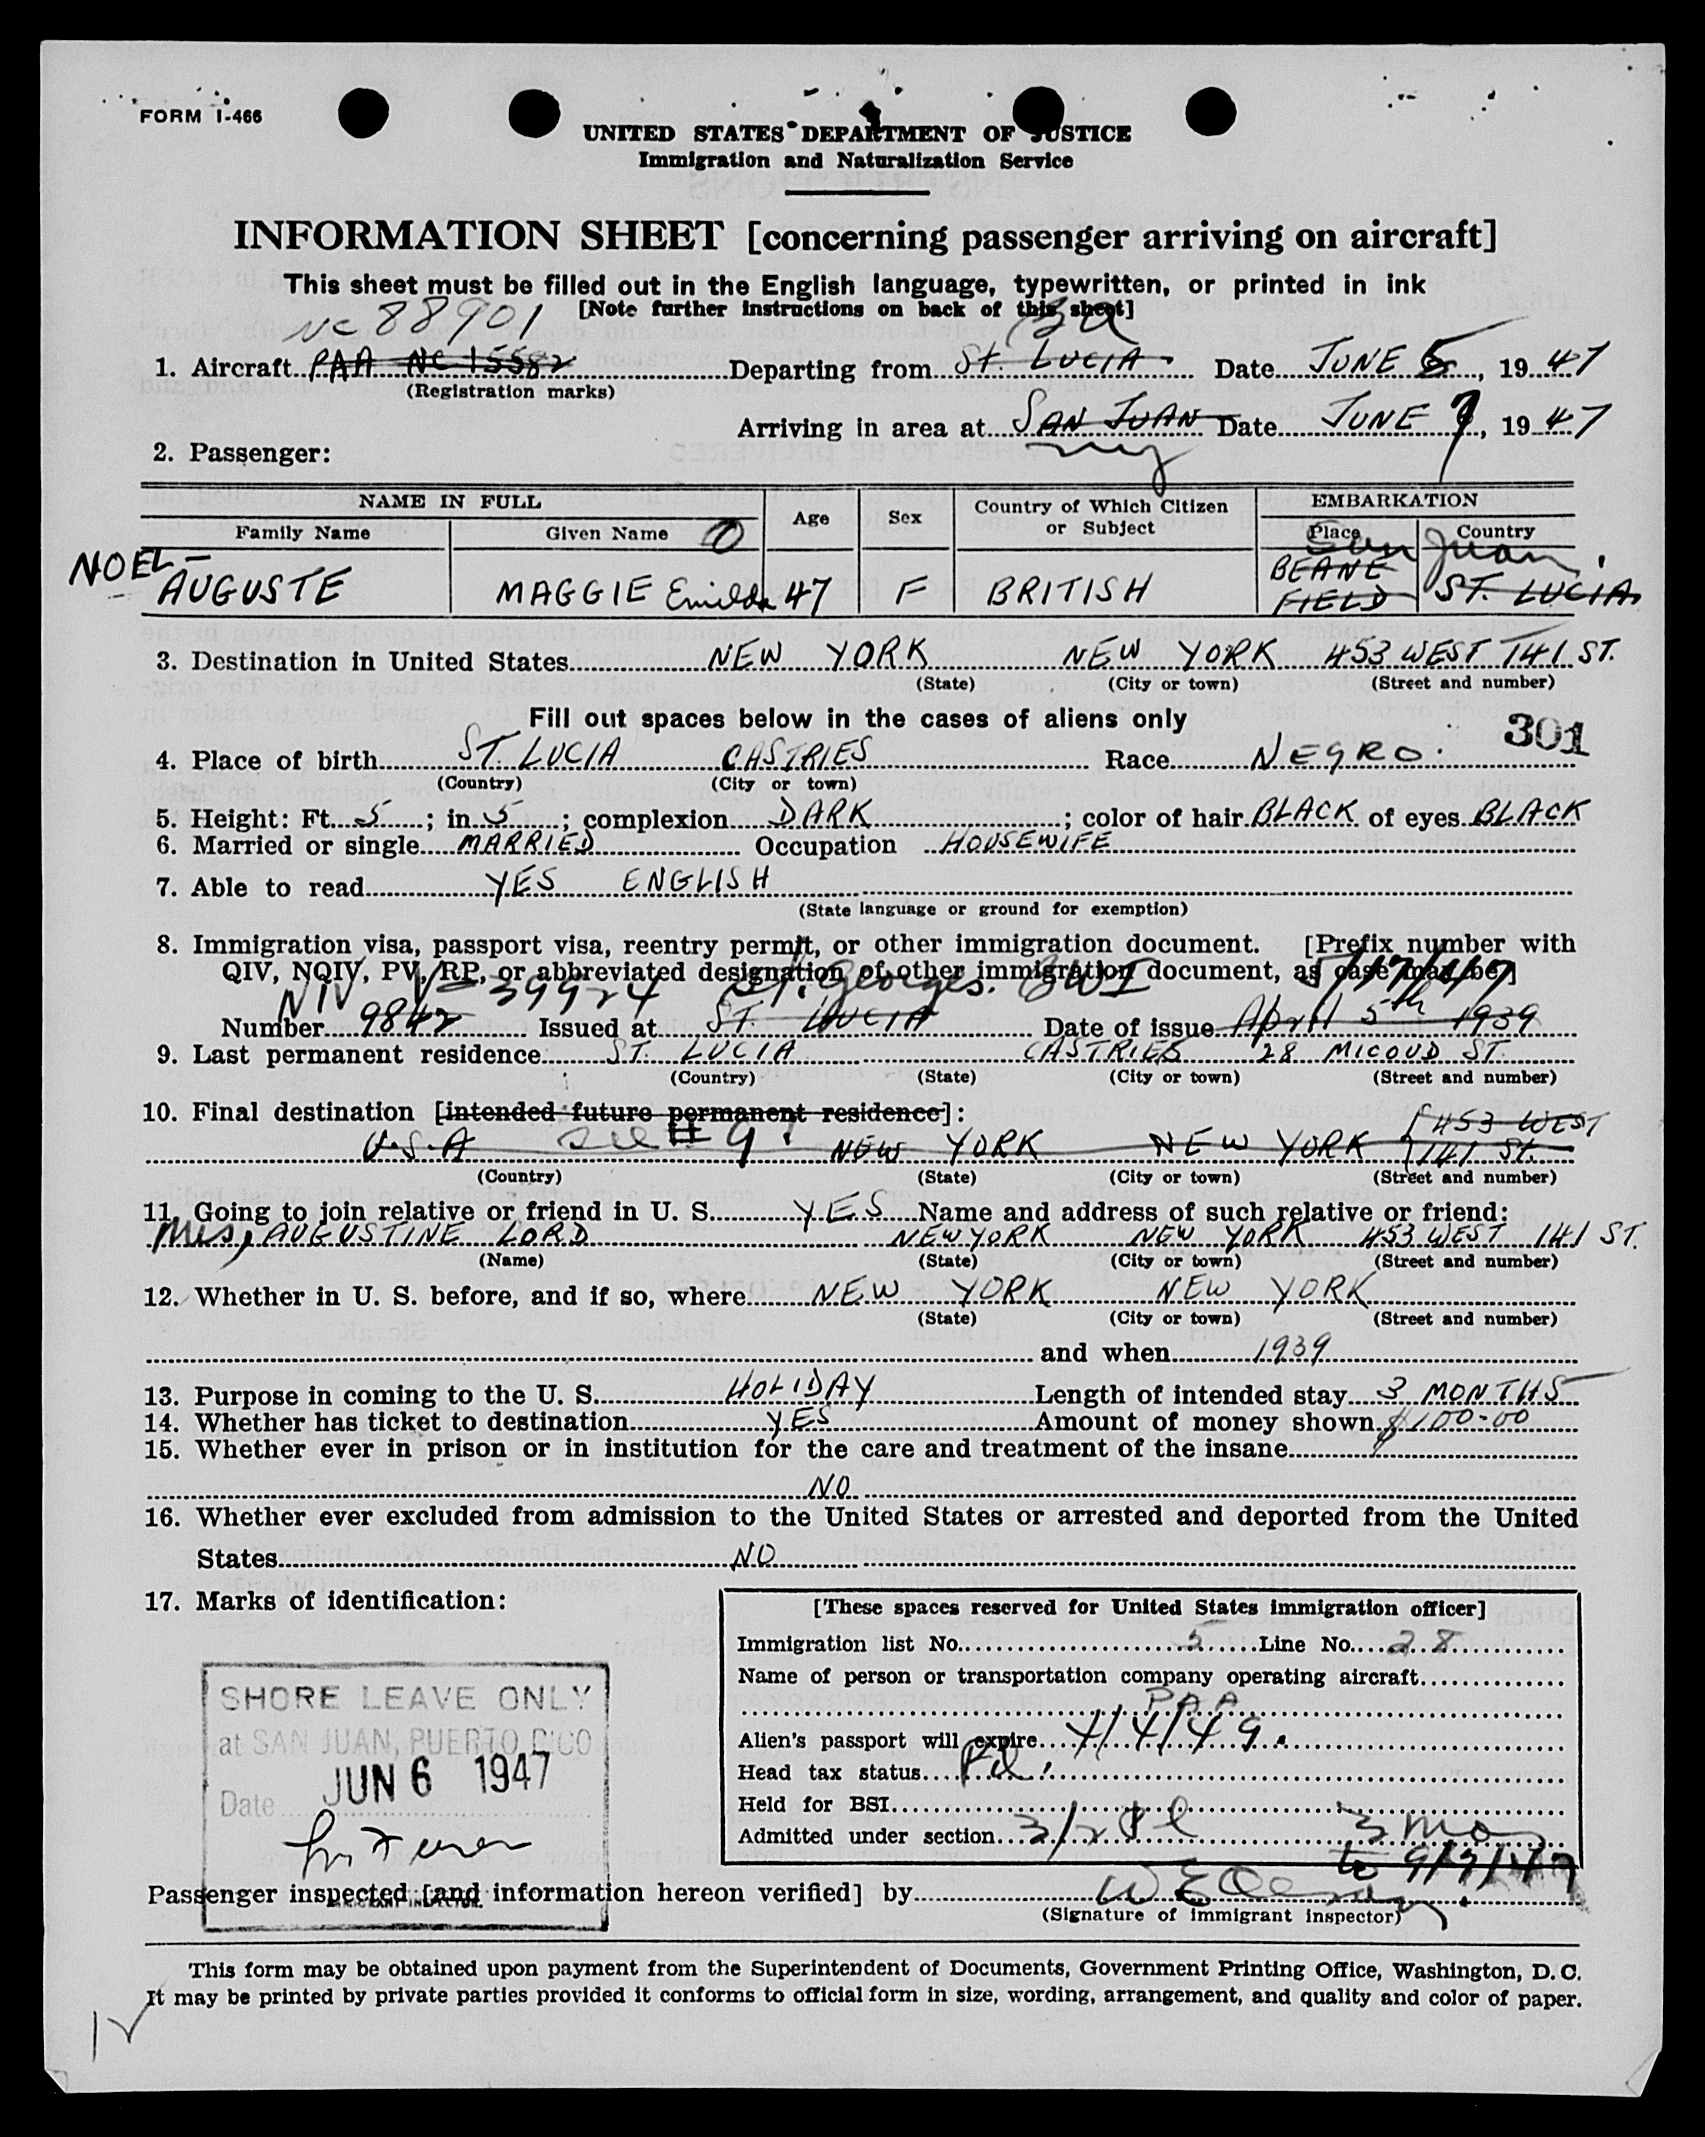 FORM I-466
UNITED STATES DEPARTMENT OF JUSTICE
Immigration and Naturalization Service
INFORMATION SHEET [concerning passenger arriving on aircraft]
This sheet must be filled out in the English language, typewritten, or printed in ink
[Note further instructions on back of this sheet]
NC 88901
1. Aircraft PAA NC 15582 Departing from St. LUCIA Date JUNE 5, 1947
(Registration marks)
Arriving in area at SAN JUAN Date JUNE 7, 1947
ny
2. Passenger:
NAME IN FULL Age Sex Country of Which Citizen or Subject EMBARKATION
Family Name Given Name Place Country
San Juan
NOEL- AUGUSTE MAGGIE Emilda 47 F BRITISH BEANE FIELD ST. LUCIA
3. Destination in United States NEW YORK NEW YORK 453 WEST 141 ST.
(State) (City or town) (Street and number)
Fill out spaces below in the cases of aliens only 301
4. Place of birth ST. LUCIA CASTRIES Race NEGRO.
(Country) (City or town)
5. Height: Ft. 5; in 5; complexion DARK; color of hair BLACK of eyes BLACK
6. Married or single MARRIED Occupation HOUSEWIFE
7. Able to read YES ENGLISH
(State language or ground for exemption)
8. Immigration visa, passport visa, reentry permit, or other immigration document. [Prefix number with
QIV, NQIV, PV, RP, or abbreviated designation of other immigration document, as case may be]
NIV V-39924 St. Georges. BWI 5/17/47
Number 9842 Issued at ST. LUCIA Date of issue April 5th 1939
9. Last permanent residence ST. LUCIA CASTRIES 28 MICOUD ST.
(Country) (State) (City or town) (Street and number)
10. Final destination [intended future permanent residence]:
U.S.A see # 9. NEW YORK NEW YORK 453 WEST 141 ST.
(Country) (State) (City or town) (Street and number)
11. Going to join relative or friend in U. S. YES Name and address of such relative or friend:
Mrs, AUGUSTINE LORD NEW YORK NEW YORK 453 WEST 141 ST.
(Name) (State) (City or town) (Street and number)
12. Whether in U. S. before, and if so, where NEW YORK NEW YORK
(State) (City or town) (Street and number)
and when 1939
13. Purpose in coming to the U. S. HOLIDAY Length of intended stay 3 MONTHS
14. Whether has ticket to destination YES Amount of money shown $100-00
15. Whether ever in prison or in institution for the care and treatment of the insane
NO
16. Whether ever excluded from admission to the United States or arrested and deported from the United
States NO
17. Marks of identification:
[These spaces reserved for United States immigration officer]
Immigration list No. 5 Line No. 28
Name of person or transportation company operating aircraft
PAA
Alien's passport will expire 4/4/49.
Head tax status Pd.
Held for BSI
Admitted under section 3/2 Pl 3 mos
to 9/7/47
SHORE LEAVE ONLY
at SAN JUAN, PUERTO RICO
Date JUN 6 1947
Passenger inspected [and information hereon verified] by
(Signature of immigrant inspector)
This form may be obtained upon payment from the Superintendent of Documents, Government Printing Office, Washington, D. C.
It may be printed by private parties provided it conforms to official form in size, wording, arrangement, and quality and color of paper.